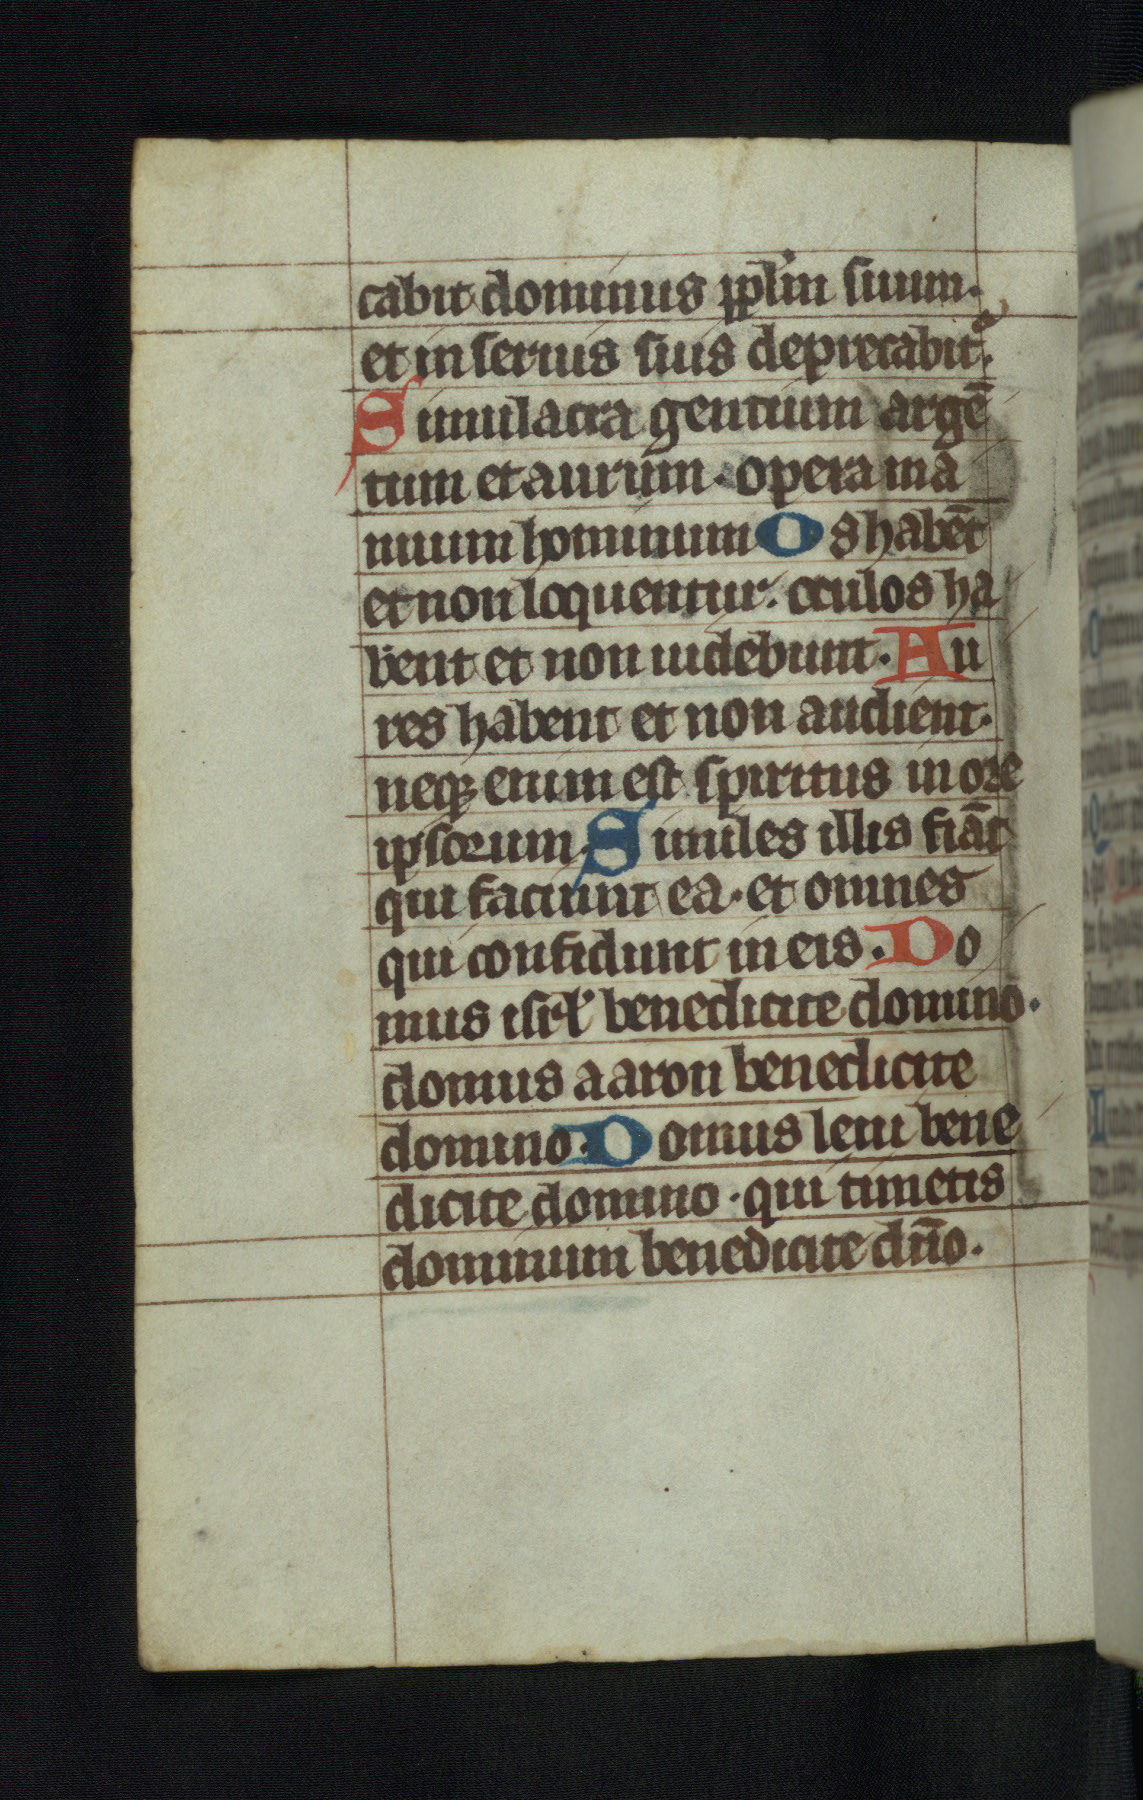 cabit dominus pplm suum.
et in seruis suis deprecabit͛.
Simulacra gentium argē
tum et aurum. opera ma
nuum hominum Os habēt
et non loquentur. oculos ha
bent et non uidebunt. Au
res habent et non audient.
neqꝫ enim est spiritus in ore
ipsorum. Similes illis fiāt
qui faciunt ea. et omnes
qui confidunt in eis. Do
mus isrl benedicite domino.
domus aaron benedicite
domino. Domus leui bene
dicite domino. qui timetis
dominum benedicite dn̄o.